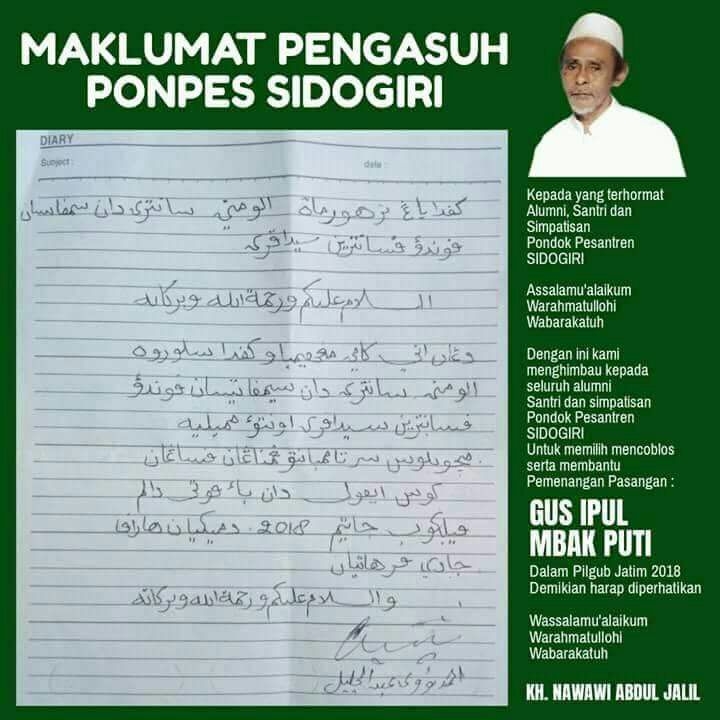 MAKLUMAT PENGASUH
PONPES SIDOGIRI
DIARY
Subject :
date :
كفدا ياڠ ترهورمات الومني سانتري دان سمفاتيسان
فوندؤ فسانترين سيداڤري
السلام عليكم ورحمة الله وبركاته
دڠان اني كامي
كفدا سلوروه
الومني سانتري دان سيمفاتيسان فوندؤ
فسانترين سيداڤري اونتوء
سرتا ممبانتو
فساڠان
كوس ايفول دان باء فوتي دالم
جاتيم 2018. دميكيان هارف
جادي فرهاتيان
والسلام عليكم ورحمة الله وبركاته
نووي عبد الجليل
Kepada yang terhormat
Alumni, Santri dan
Simpatisan
Pondok Pesantren
SIDOGIRI
Assalamu'alaikum
Warahmatullohi
Wabarakatuh
Dengan ini kami
menghimbau kepada
seluruh alumni
Santri dan simpatisan
Pondok Pesantren
SIDOGIRI
Untuk memilih mencoblos
serta membantu
Pemenangan Pasangan :
GUS IPUL
MBAK PUTI
Dalam Pilgub Jatim 2018
Demikian harap diperhatikan
Wassalamu'alaikum
Warahmatullohi
Wabarakatuh
KH. NAWAWI ABDUL JALIL